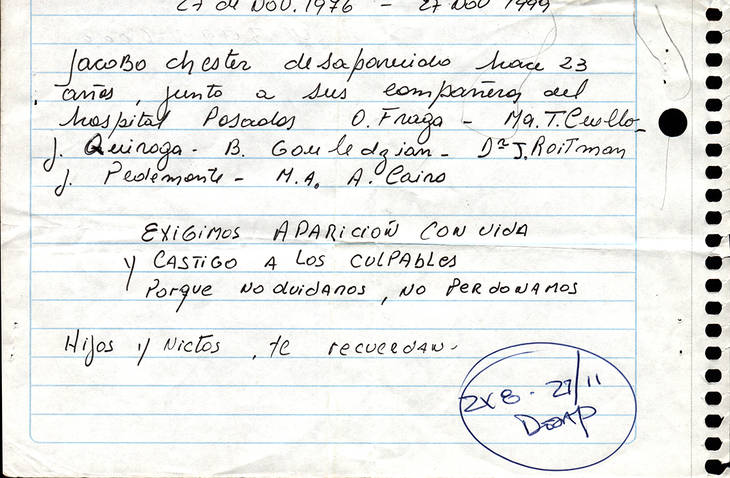 27 de Nov. 1976 - 27 Nov 1999
Jacobo Chester desaparecido hace 23
años, junto a sus compañeros del
hospital Posadas O. Fraga - Ma. T. Cuello -
J. Quiroga - B. Gouledzian - Dr J. Roitman
J. Pedemonte - M.A. A. Cairo
EXIGIMOS APARICIOÑ CON VIDA
Y CASTIGO A LOS CULPABLES
Porque NO OLVIDAMOS, NO PERDONAMOS
Hijos y Nietos, te recuerdan.
2x8 - 27/11
Desap